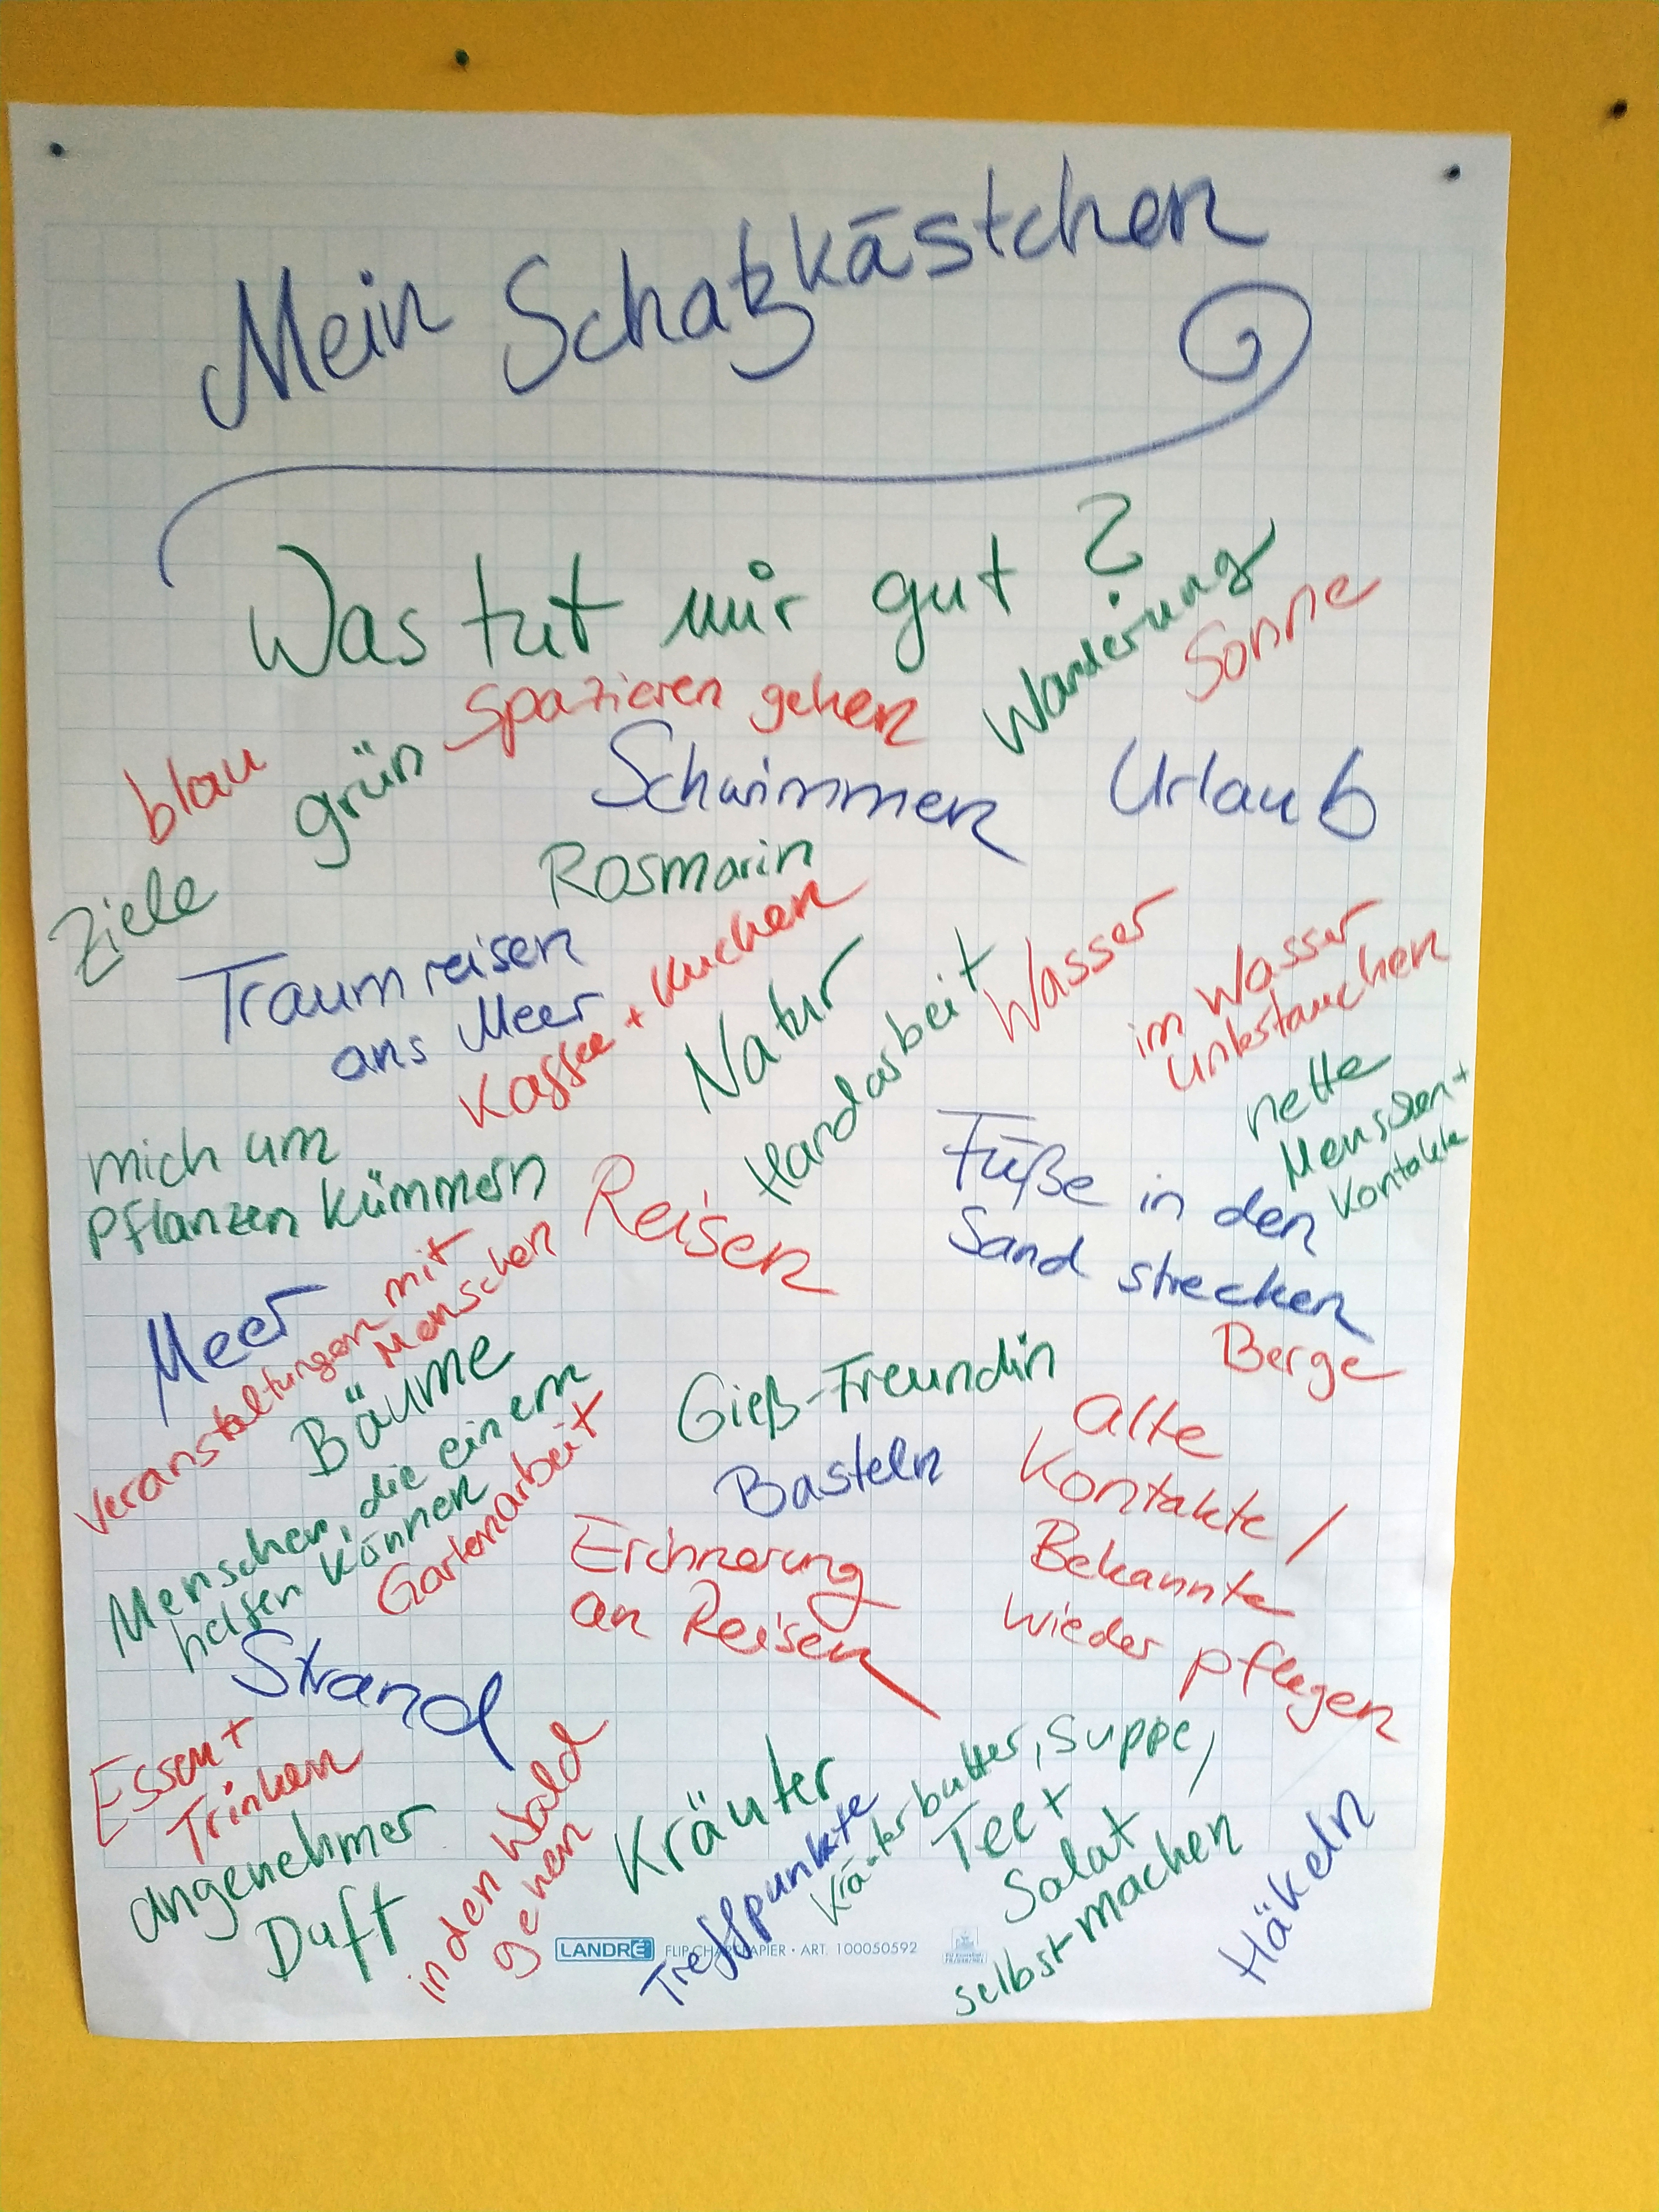 Mein Schatzkästchen
Was tut mir gut?
Wanderung
Sonne
spazieren gehen
blau
grün
Schwimmen
Urlaub
Rosmarin
Ziele
Traumreisen
ans Meer
Kaffee + Kuchen
Natur
Handarbeit
Wasser
im Wasser
nette
Menschen +
Kontakte
mich um
Pflanzen kümmern
Reisen
Füße in den
Sand strecken
Meer
Veranstaltungen mit
Menschen
Bäume
Gieß-Freundin
Berge
Basteln
alte
Kontakte /
Bekannte
wieder pflegen
Menschen, die einem
helfen können
Gartenarbeit
Erinnerung
an Reisen
Strand
Essen +
Trinken
angenehmer
Duft
in den Wald
gehen
Kräuter
Treffpunkte
Kräuterbutter, Suppe,
Tee +
Salat
selbst-machen
Häkeln
LANDRÉ FLIP-CHARTPAPIER • ART. 100050592